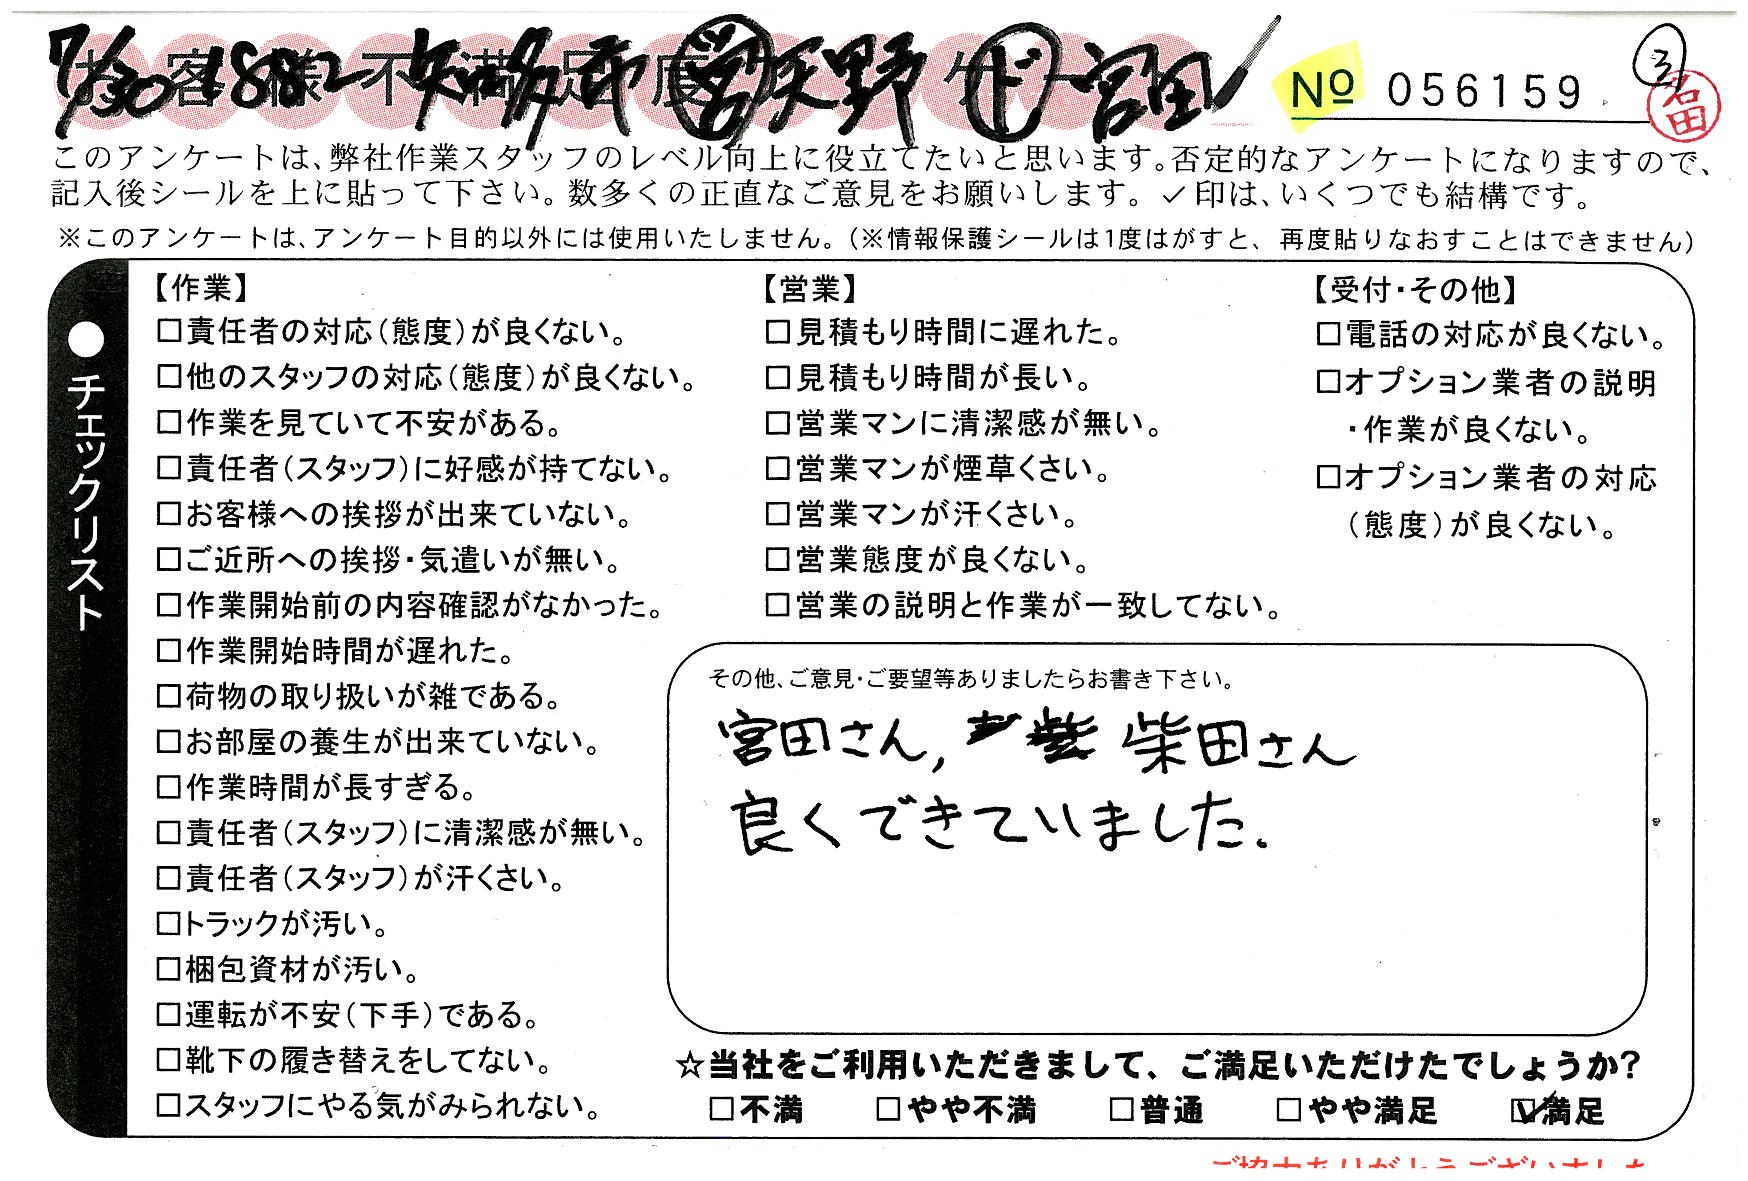 お客様不満足度アンケート
7/30 1882 知多市 営 天野 ド 宮田
No 056159
3
石田
このアンケートは、弊社作業スタッフのレベル向上に役立てたいと思います。否定的なアンケートになりますので、
記入後シールを上に貼って下さい。数多くの正直なご意見をお願いします。✓印は、いくつでも結構です。
※このアンケートは、アンケート目的以外には使用いたしません。（※情報保護シールは1度はがすと、再度貼りなおすことはできません）
●チェックリスト
【作業】
□責任者の対応（態度）が良くない。
□他のスタッフの対応（態度）が良くない。
□作業を見ていて不安がある。
□責任者（スタッフ）に好感が持てない。
□お客様への挨拶が出来ていない。
□ご近所への挨拶・気遣いが無い。
□作業開始前の内容確認がなかった。
□作業開始時間が遅れた。
□荷物の取り扱いが雑である。
□お部屋の養生が出来ていない。
□作業時間が長すぎる。
□責任者（スタッフ）に清潔感が無い。
□責任者（スタッフ）が汗くさい。
□トラックが汚い。
□梱包資材が汚い。
□運転が不安（下手）である。
□靴下の履き替えをしてない。
□スタッフにやる気がみられない。
【営業】
□見積もり時間に遅れた。
□見積もり時間が長い。
□営業マンに清潔感が無い。
□営業マンが煙草くさい。
□営業マンが汗くさい。
□営業態度が良くない。
□営業の説明と作業が一致してない。
【受付・その他】
□電話の対応が良くない。
□オプション業者の説明
・作業が良くない。
□オプション業者の対応
（態度）が良くない。
その他、ご意見・ご要望等ありましたらお書き下さい。
宮田さん, 柴田さん
良くできていました.
☆当社をご利用いただきまして、ご満足いただけたでしょうか?
□不満 □やや不満 □普通 □やや満足 ☑満足
ご協力ありがとうございました